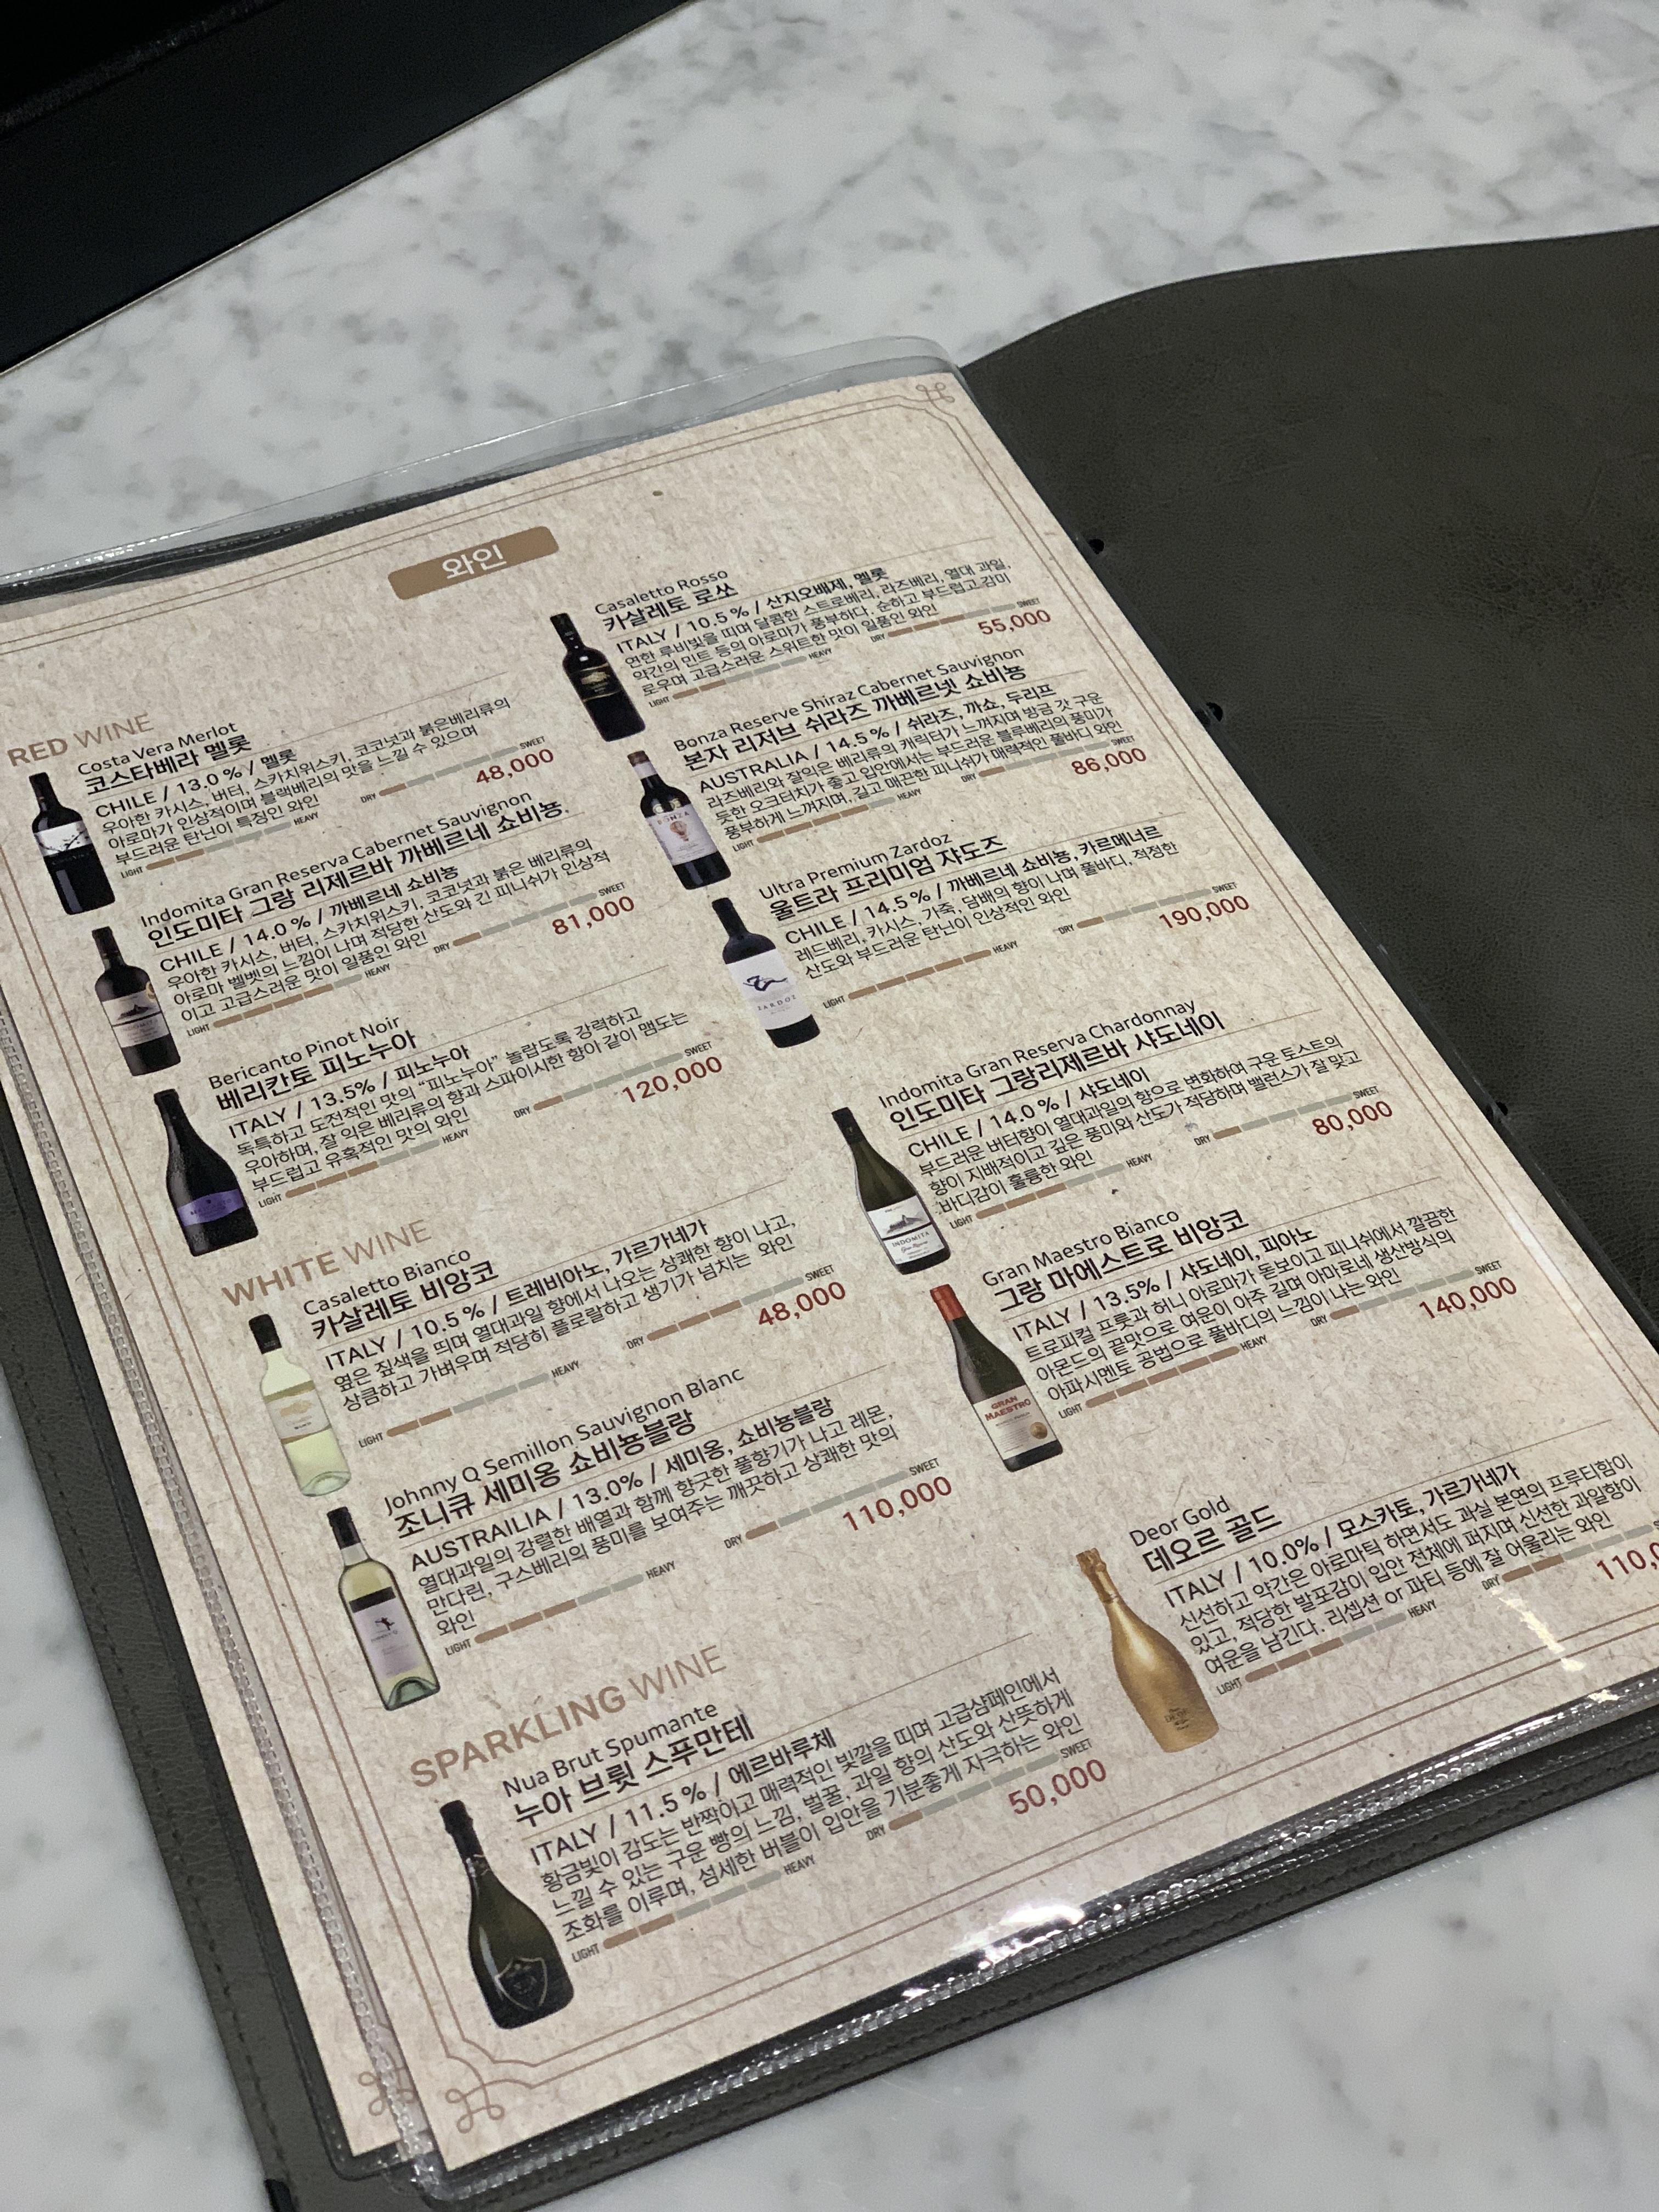 와인
RED WINE
Costa Vera Merlot
코스타베라 멜롯
CHILE / 13.0% / 멜롯
우아한 카시스, 버터, 스카치위스키, 코코넛과 붉은베리류의
아로마가 인상적이며 블랙베리의 맛을 느낄 수 있으며
부드러운 탄닌이 특징인 와인
LIGHT HEAVY
DRY SWEET
48,000
Indomita Gran Reserva Cabernet Sauvignon
인도미타 그랑 리제르바 까베르네 쇼비뇽
CHILE / 14.0% / 까베르네 쇼비뇽
우아한 카시스, 버터, 스카치위스키, 코코넛과 붉은 베리류의
아로마 벨벳의 느낌이 나며 적당한 산도와 긴 피니쉬가 인상적
이고 고급스러운 맛이 일품인 와인
LIGHT HEAVY
DRY SWEET
81,000
Bericanto Pinot Noir
베리칸토 피노누아
ITALY / 13.5% / 피노누아
독특하고 도전적인 맛의 “피노누아” 놀랍도록 강력하고
우아하며, 잘 익은 베리류의 향과 스파이시한 향이 같이 맴도는
부드럽고 유혹적인 맛의 와인
LIGHT HEAVY
DRY SWEET
120,000
Casaletto Rosso
카살레토 로쏘
ITALY / 10.5% / 산지오베제, 멜롯
연한 루비빛을 띠며 달콤한 스트로베리, 라즈베리, 열대 과일,
약간의 민트 등의 아로마가 풍부하다. 순하고 부드럽고 감미
로우며 고급스러운 스위트한 맛이 일품인 와인
LIGHT HEAVY
DRY SWEET
55,000
Bonza Reserve Shiraz Cabernet Sauvignon
본자 리저브 쉬라즈 까베르넷 쇼비뇽
AUSTRALIA / 14.5% / 쉬라즈, 까쇼, 두리프
라즈베리와 잘익은 베리류의 캐릭터가 느껴지며 방금 갓 구운
듯한 오크터치가 좋고 입안에서는 부드러운 블루베리의 풍미가
풍부하게 느껴지며, 길고 매끈한 피니쉬가 매력적인 풀바디 와인
LIGHT HEAVY
DRY SWEET
86,000
BONZA
Ultra Premium Zardoz
울트라 프리미엄 쟈도즈
CHILE / 14.5% / 까베르네 쇼비뇽, 카르메너르
레드베리, 카시스, 가죽, 담배의 향이 나며 풀바디, 적정한
산도와 부드러운 탄닌이 인상적인 와인
LIGHT HEAVY
DRY SWEET
190,000
ZARDOZ
WHITE WINE
Casaletto Bianco
카살레토 비앙코
ITALY / 10.5% / 트레비아노, 가르가네가
옅은 짚색을 띄며 열대과일 향에서 나오는 상쾌한 향이 나고,
상큼하고 가벼우며 적당히 플로랄하고 생기가 넘치는 와인
LIGHT HEAVY
DRY SWEET
48,000
Johnny Q Semillon Sauvignon Blanc
조니큐 세미옹 쇼비뇽블랑
AUSTRAILIA / 13.0% / 세미옹, 쇼비뇽블랑
열대과일의 강렬한 배열과 함께 향긋한 풀향기가 나고 레몬,
만다린, 구스베리의 풍미를 보여주는 깨끗하고 상쾌한 맛의
와인
LIGHT HEAVY
DRY SWEET
110,000
Indomita Gran Reserva Chardonnay
인도미타 그랑리제르바 샤도네이
CHILE / 14.0% / 샤도네이
부드러운 버터향이 열대과일의 향으로 변화하여 구운 토스트의
향이 지배적이고 깊은 풍미와 산도가 적당하며 밸런스가 잘 맞고
바디감이 훌륭한 와인
LIGHT HEAVY
DRY SWEET
80,000
INDOMITA
Gran Maestro Bianco
그랑 마에스트로 비앙코
ITALY / 13.5% / 샤도네이, 피아노
트로피컬 프룻과 허니 아로마가 돋보이고 피니쉬에서 깔끔한
아몬드의 끝맛으로 여운이 아주 길며 아마로네 생산방식의
아파시멘토 공법으로 풀바디의 느낌이 나는 와인
LIGHT HEAVY
DRY SWEET
140,000
GRAN
MAESTRO
SPARKLING WINE
Nua Brut Spumante
누아 브륏 스푸만테
ITALY / 11.5% / 에르바루체
황금빛이 감도는 반짝이고 매력적인 빛깔을 띠며 고급샴페인에서
느낄 수 있는 구운 빵의 느낌, 벌꿀, 과일 향의 산도와 산뜻하게
조화를 이루며, 섬세한 버블이 입안을 기분좋게 자극하는 와인
LIGHT HEAVY
DRY SWEET
50,000
Deor Gold
데오르 골드
ITALY / 10.0% / 모스카토, 가르가네가
신선하고 약간은 아로마틱 하면서도 과실 본연의 프루티함이
있고, 적당한 발포감이 입안 전체에 퍼지며 신선한 과일향이
여운을 남긴다. 리셉션 or 파티 등에 잘 어울리는 와인
LIGHT HEAVY
DRY
110,0